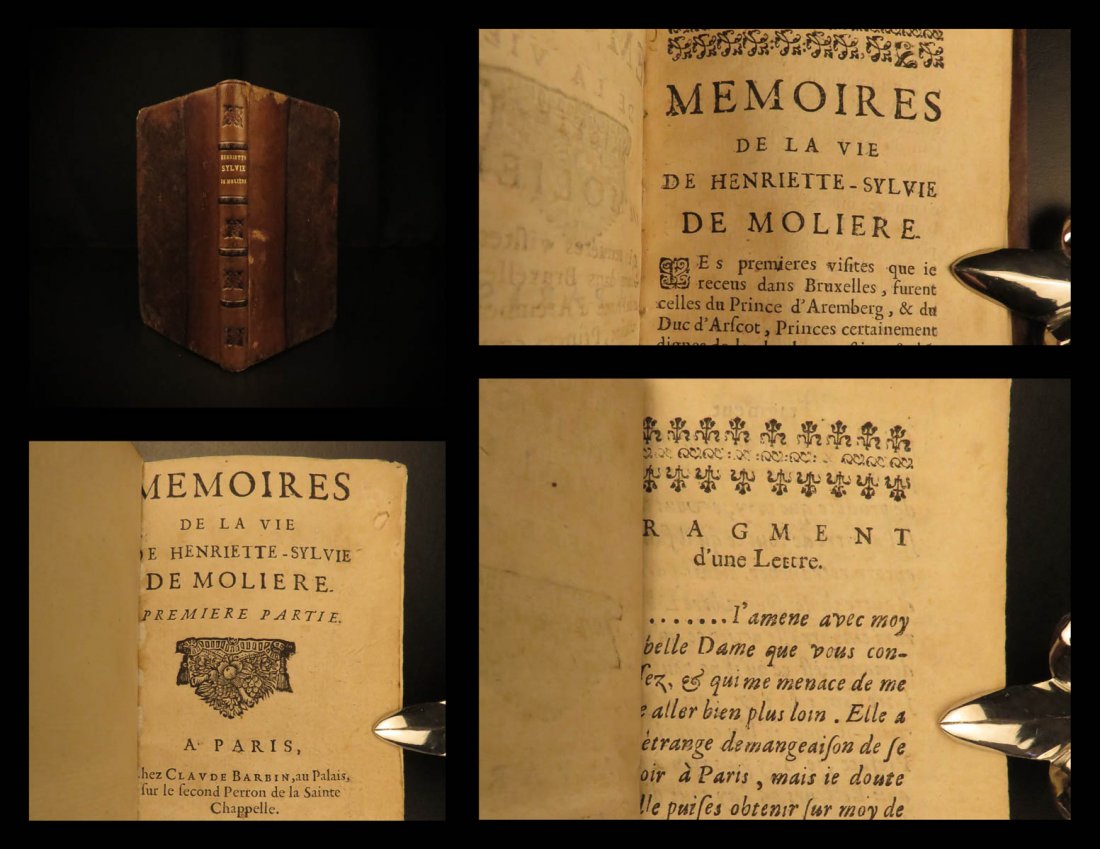 HENRIETTE
SYLVIE
DE MOLIÈRE
MEMOIRES
DE LA VIE
DE HENRIETTE-SYLVIE
DE MOLIERE.
Es premieres viſites que ie
receus dans Bruxelles, furent
celles du Prince d'Aremberg, & du
Duc d'Arſcot, Princes certainement
MEMOIRES
DE LA VIE
DE HENRIETTE-SYLVIE
DE MOLIERE.
PREMIERE PARTIE.
A PARIS,
chez CLAVDE BARBIN, au Palais,
ſur le ſecond Perron de la Sainte
Chappelle.
RAGMENT
d'une Lettre.
.......I'amene avec moy
belle Dame que vous con-
ſez, & qui me menace de me
e aller bien plus loin. Elle a
étrange demangeaiſon de ſe
oir à Paris, mais ie doute
lle puiſes obtenir ſur moy de